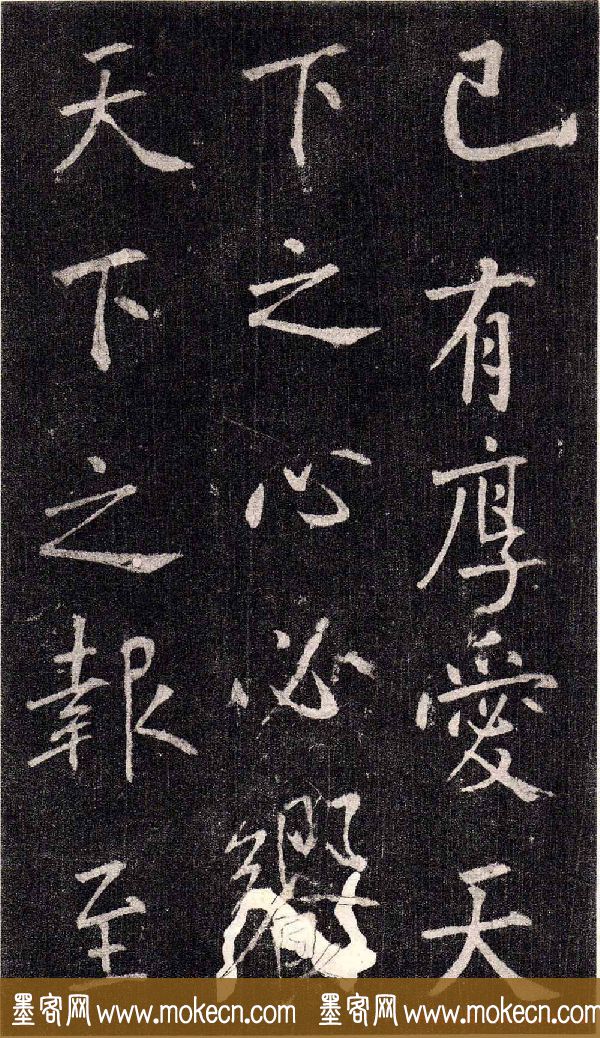 已有厚愛天
下之心必
天下之報至
墨客网 www.mokecn.com 墨客网 www.mokecn.com